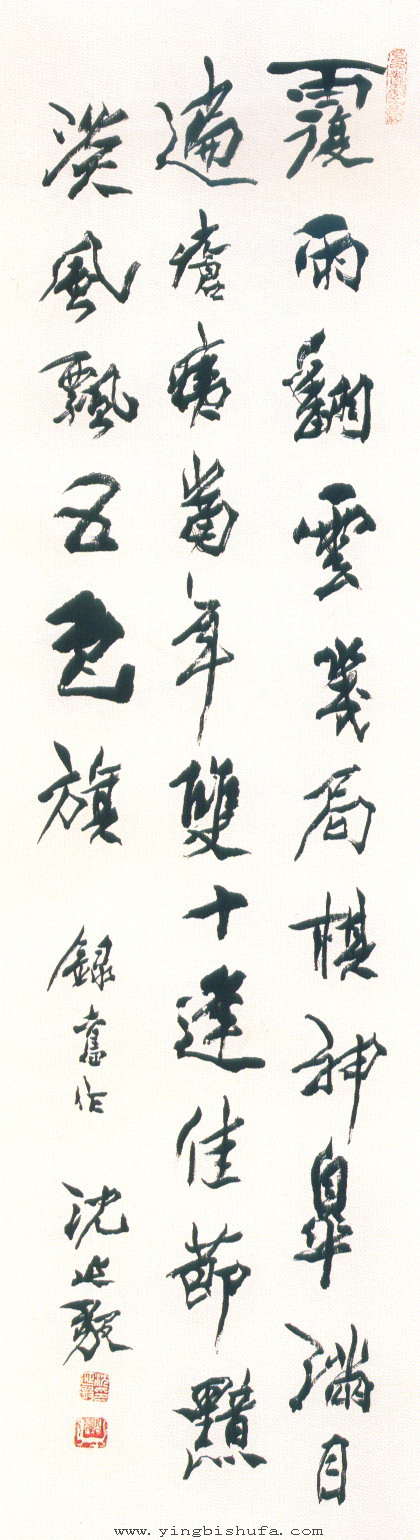 覆雨翻雲幾局棋神皋滿目
遍瘡痍當年雙十逢佳節黯
淡風飄五色旗 錄舊作 沈延毅
www.yingbishufa.com